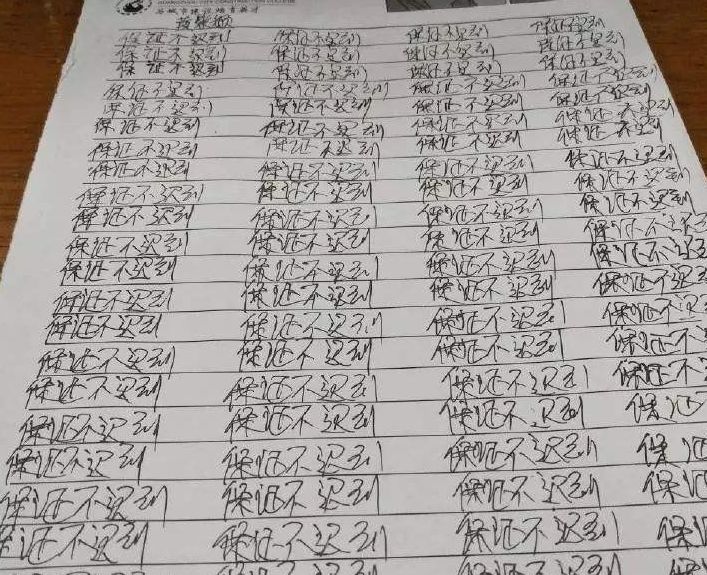 GUANGZHOU CITY CONSTRUCTION COLLEGE
保证不迟到 保证不迟到 保证不迟到 保证不迟到
保证不迟到 保证不迟到 保证不迟到 保证不迟到
保证不迟到 保证不迟到 保证不迟到 保证不迟到
保证不迟到 保证不迟到 保证不迟到 保证不迟到
保证不迟到 保证不迟到 保证不迟到 保证不迟到
保证不迟到 保证不迟到 保证不迟到 保证不迟到
保证不迟到 保证不迟到 保证不迟到 保证不迟到
保证不迟到 保证不迟到 保证不迟到 保证不迟到
保证不迟到 保证不迟到 保证不迟到 保证不迟到
保证不迟到 保证不迟到 保证不迟到 保证不迟到
保证不迟到 保证不迟到 保证不迟到 保证不迟到
保证不迟到 保证不迟到 保证不迟到 保证不迟到
保证不迟到 保证不迟到 保证不迟到 保证不迟到
保证不迟到 保证不迟到 保证不迟到 保证不迟
保证不迟到 保证不迟到 保证不迟到 保证不迟
保证不迟到 保证不迟到 保证不迟到 保证不
保证不迟到 保证不迟到 保证不迟到 保证
保证不迟到 保证不迟到 保证不迟到 保证
保证不迟到 保证不迟到 保证不迟到 保证
保证不迟到 保证不迟到 保证不迟到 保证
保证不迟到 保证不迟到 保证不迟到 保